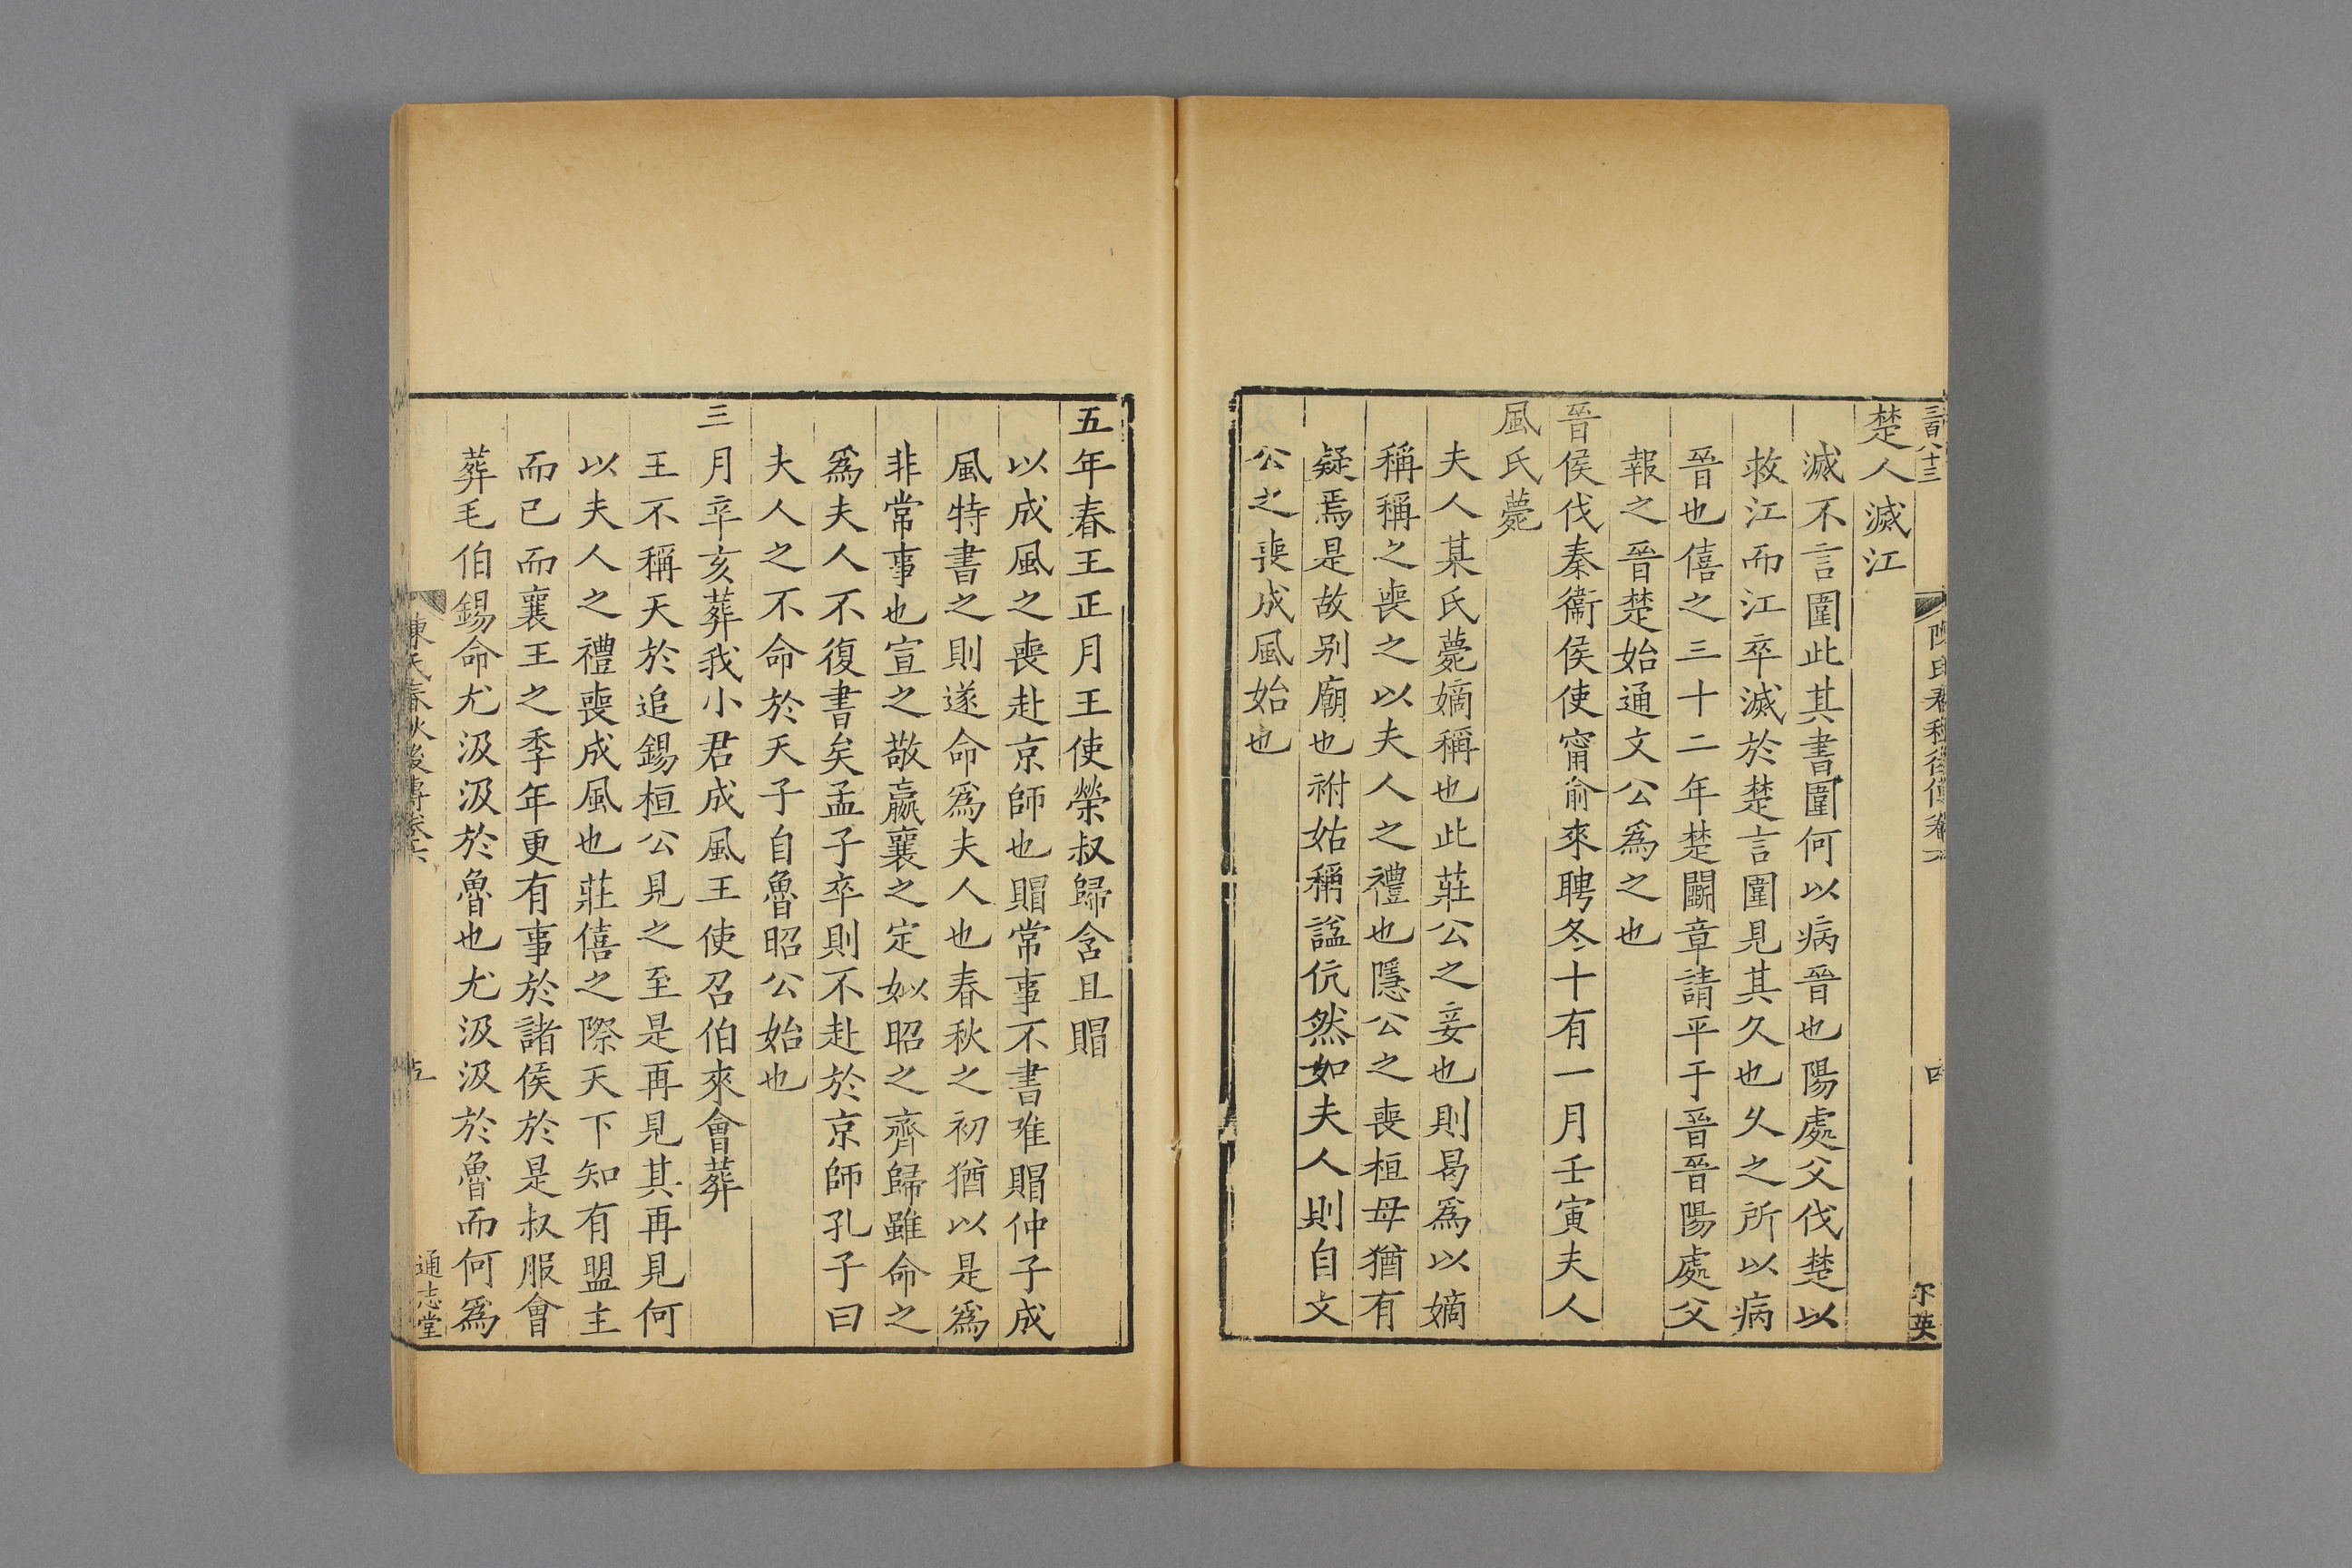 三百八十三
陳氏春秋後傳卷六
四
尔英
楚人滅江
滅不言圍此其書圍何以病晉也陽處父伐楚以
救江而江卒滅於楚言圍見其久也乆之所以病
晉也僖之三十二年楚鬬章請平于晉晉陽處父
報之晉楚始通文公爲之也
晉侯伐秦衞侯使甯俞來聘冬十有一月壬寅夫人
風氏薨
夫人某氏薨嫡稱也此莊公之妾也則曷爲以嫡
稱稱之喪之以夫人之禮也隱公之喪桓母猶有
疑焉是故别廟也祔姑稱諡伉然如夫人則自文
公之喪成風始也
五年春王正月王使榮叔歸含且賵
以成風之喪赴京師也賵常事不書唯賵仲子成
風特書之則遂命爲夫人也春秋之初猶以是爲
非常事也宣之敬嬴襄之定姒昭之齊歸雖命之
爲夫人不復書矣孟子卒則不赴於京師孔子曰
夫人之不命於天子自魯昭公始也
三月辛亥葬我小君成風王使召伯來會葬
王不稱天於追錫桓公見之至是再見其再見何
以夫人之禮喪成風也莊僖之際天下知有盟主
而已而襄王之季年更有事於諸侯於是叔服會
葬毛伯錫命尤汲汲於魯也尤汲汲於魯而何爲
陳氏春秋後傳卷六
五
通志堂